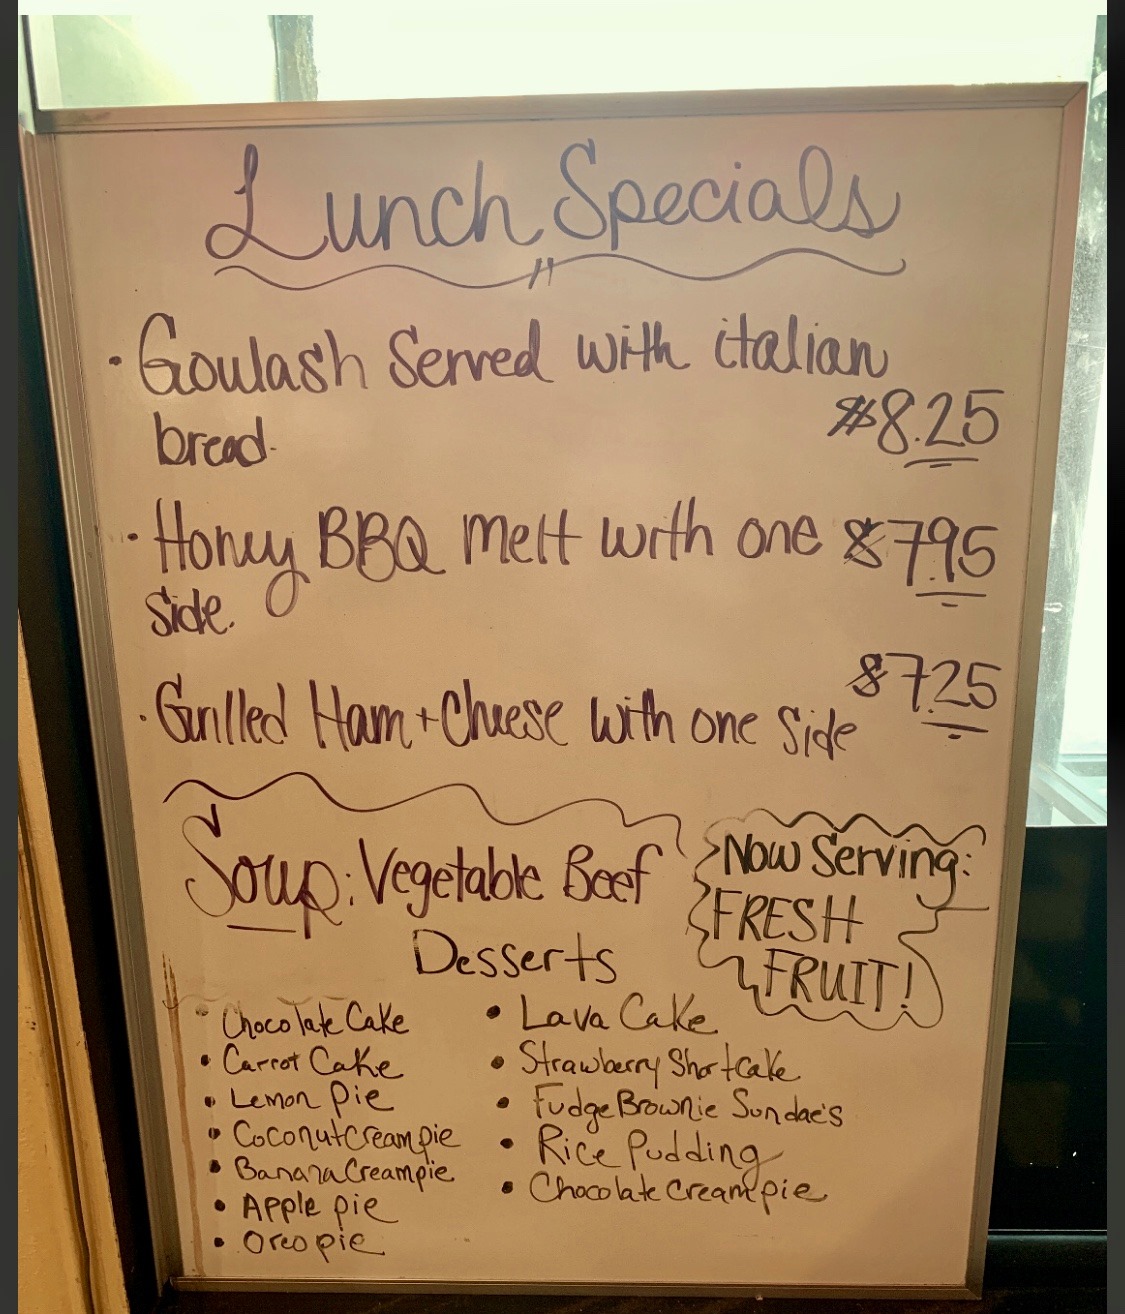 Lunch Specials
• Goulash Served with italian
bread.
$8.25
• Honey BBQ Melt with one $7.95
side.
$7.25
• Grilled Ham + Cheese with one side
Soup: Vegetable Beef
Now Serving:
FRESH
FRUIT!
Desserts
• Chocolate Cake
• Carrot Cake
• Lemon Pie
• Coconut Cream pie
• Banana Cream pie
• Apple pie
• Oreo pie
• Lava Cake
• Strawberry Shortcake
• Fudge Brownie Sundae's
• Rice Pudding
• Chocolate Cream pie